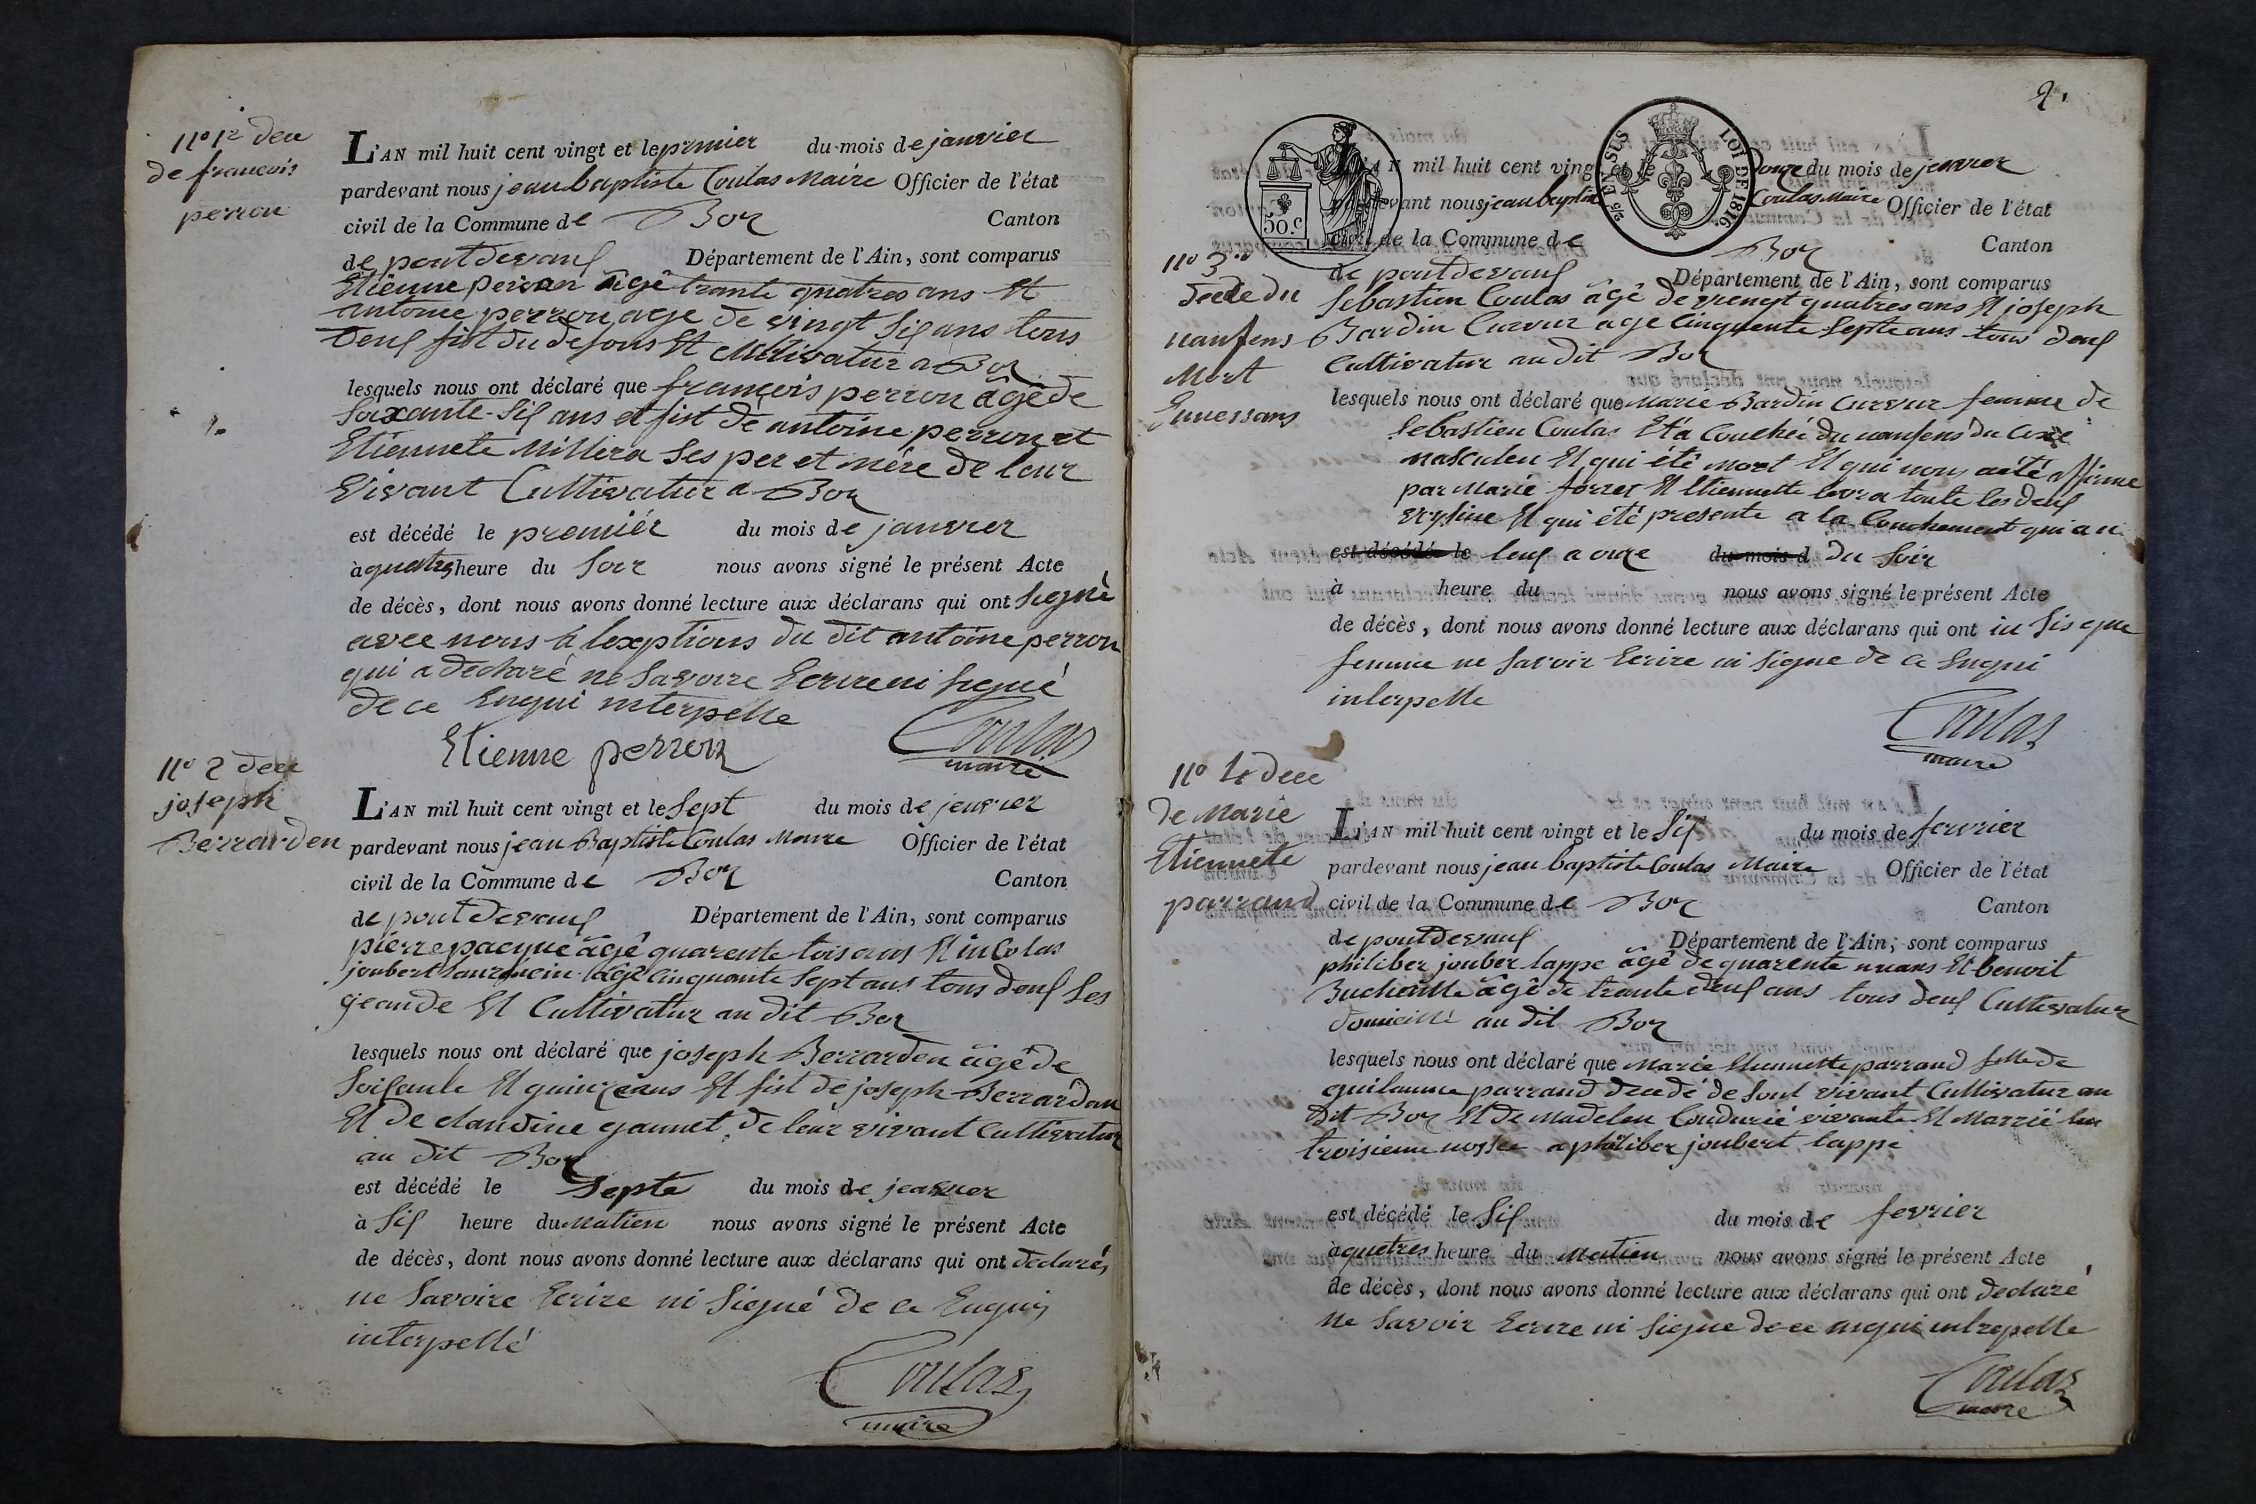 No 1r dece
de francois
perron
L'AN mil huit cent vingt et le premier du mois de janvier
pardevant nous jean baptiste Coulas Maire Officier de l'état
civil de la Commune de Boz Canton
de pontdevaux Département de l'Ain, sont comparus
Etienne perron agé trante quatres ans Et
antoine perron age de vingt six ans tous
deux fist du defons Et Cultivatur a Boz
lesquels nous ont déclaré que françois perron âgé de
soixante-six ans et fist de antoine perron et
Etiennete Millera ses per et mére de leur
vivant Cultivatur a Boz
est décédé le premiér du mois de janvier
à quatres heure du soir nous avons signé le présent Acte
de décès, dont nous avons donné lecture aux déclarans qui ont signé
avec nous a lexptions du dit antoine perron
qui a declaré ne savoire Ecrire ni signé
de ce Enqui interpelle
Etienne perron Coulas
maire
No 2 dece
joseph
Berrarden
L'AN mil huit cent vingt et le sept du mois de jenvier
pardevant nous jean Baptiste Coulas Maire Officier de l'état
civil de la Commune de Boz Canton
de pontdevaux Département de l'Ain, sont comparus
pierre pacque âgé quarente tois ans Et incolas
joubert âgé cinquante sept ans tous deux ses
geande Et Cultivatur au dit Boz
lesquels nous ont déclaré que joseph Berrarden âgé de
soisante Et quinze ans Et fist de joseph Berrardan
Et de claudine gaunet de leur vivant Cultivatur
au dit Boz
est décédé le septe du mois de jeanvier
à six heure du Matien nous avons signé le présent Acte
de décès, dont nous avons donné lecture aux déclarans qui ont declarés
ne savoire Ecrire ni signé de ce Enqui
interpellé
Coulas
maire
2.
50.c
EN SUS
LOI DE 1816.
L'AN mil huit cent vingt et le onze du mois de jenvier
pardevant nous jean baptiste Coulas Maire Officier de l'état
civil de la Commune de Boz Canton
No 3
decde du
naufens
Mort
Ennessans
de pontdevaux Département de l'Ain, sont comparus
sebastien Coulas âgé de vrengt quatres ans Et joseph
Bardin Curvur age Cinquente septe ans tous deux
Cultivatur au dit Boz
lesquels nous ont déclaré que Marie Bardin Curvur femme de
sebastien Coulas Et a Couchée du naufens du
masculen Et qui été mort Et qui nous a été affirme
par Marie forret Et Etiennette toute les deux
Et qui été presente a la Couchement qui a u
est décédé le leux a onze du mois d du soir
à heure du nous avons signé le présent Acte
de décès, dont nous avons donné lecture aux déclarans qui ont in sis que
femme ne savoir Ecrire ni signe de ce Enqui
interpelle
Coulas
maire
No 4 dece
de Marie
Etiennete
parraud
L'AN mil huit cent vingt et le six du mois de fevrier
pardevant nous jean baptiste Coulas Maire Officier de l'état
civil de la Commune de Boz Canton
de pontdevaux Département de l'Ain, sont comparus
philiber jouber lappe âgé de quarente ans Et benoit
Bucheaille âgé de trante deux ans tous deux Cultivatur
domicillé au dit Boz
lesquels nous ont déclaré que Marie Etiennette parraud fille de
guilaume parraud decedé de sont vivant Cultivatur au
dit Boz Et de Madelen Coudurié vivante Et Marrié
troisieme nosse a philiber joubert lappe
est décédé le six du mois de fevrier
à quetres heure du Matien nous avons signé le présent Acte
de décès, dont nous avons donné lecture aux déclarans qui ont declaré
ne savoir Ecrire ni signe de ce interpelle
Coulas
maire